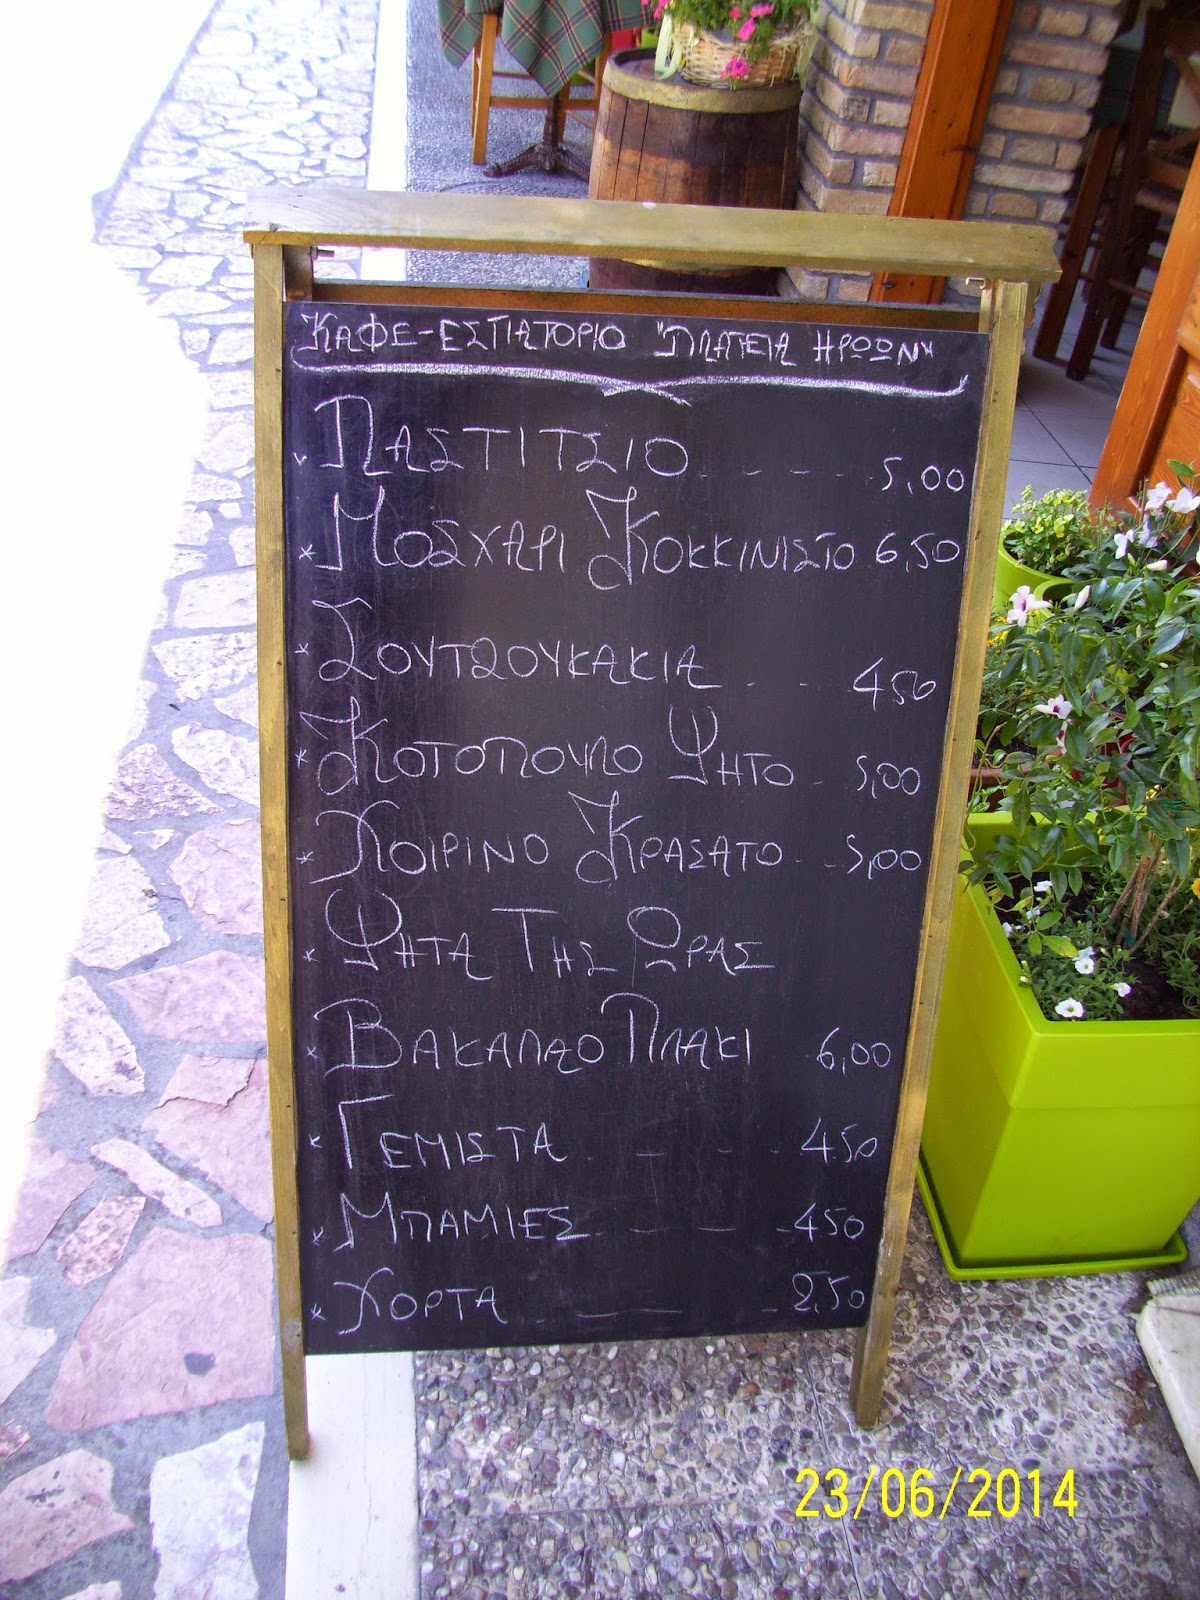 ΚΑΦΕ-ΕΣΤΙΑΤΟΡΙΟ "ΠΛΑΤΕΙΑ ΗΡΩΩΝ"
ΠΑΣΤΙΤΣΙΟ - - - - 5,00
* ΜΟΣΧΑΡΙ ΚΟΚΚΙΝΙΣΤΟ 6,50
* ΣΟΥΤΖΟΥΚΑΚΙΑ - - 450
* ΚΟΤΟΠΟΥΛΟ ΨΗΤΟ - 5,00
* ΧΟΙΡΙΝΟ ΚΡΑΣΑΤΟ - - 5,00
* ΨΗΤΑ ΤΗΣ ΩΡΑΣ
* ΒΑΚΑΛΑΟ ΠΛΑΚΙ 6,00
* ΓΕΜΙΣΤΑ - - - - 4.50
* ΜΠΑΜΙΕΣ - - - - 450
* ΧΟΡΤΑ - - - 2,50
23/06/2014